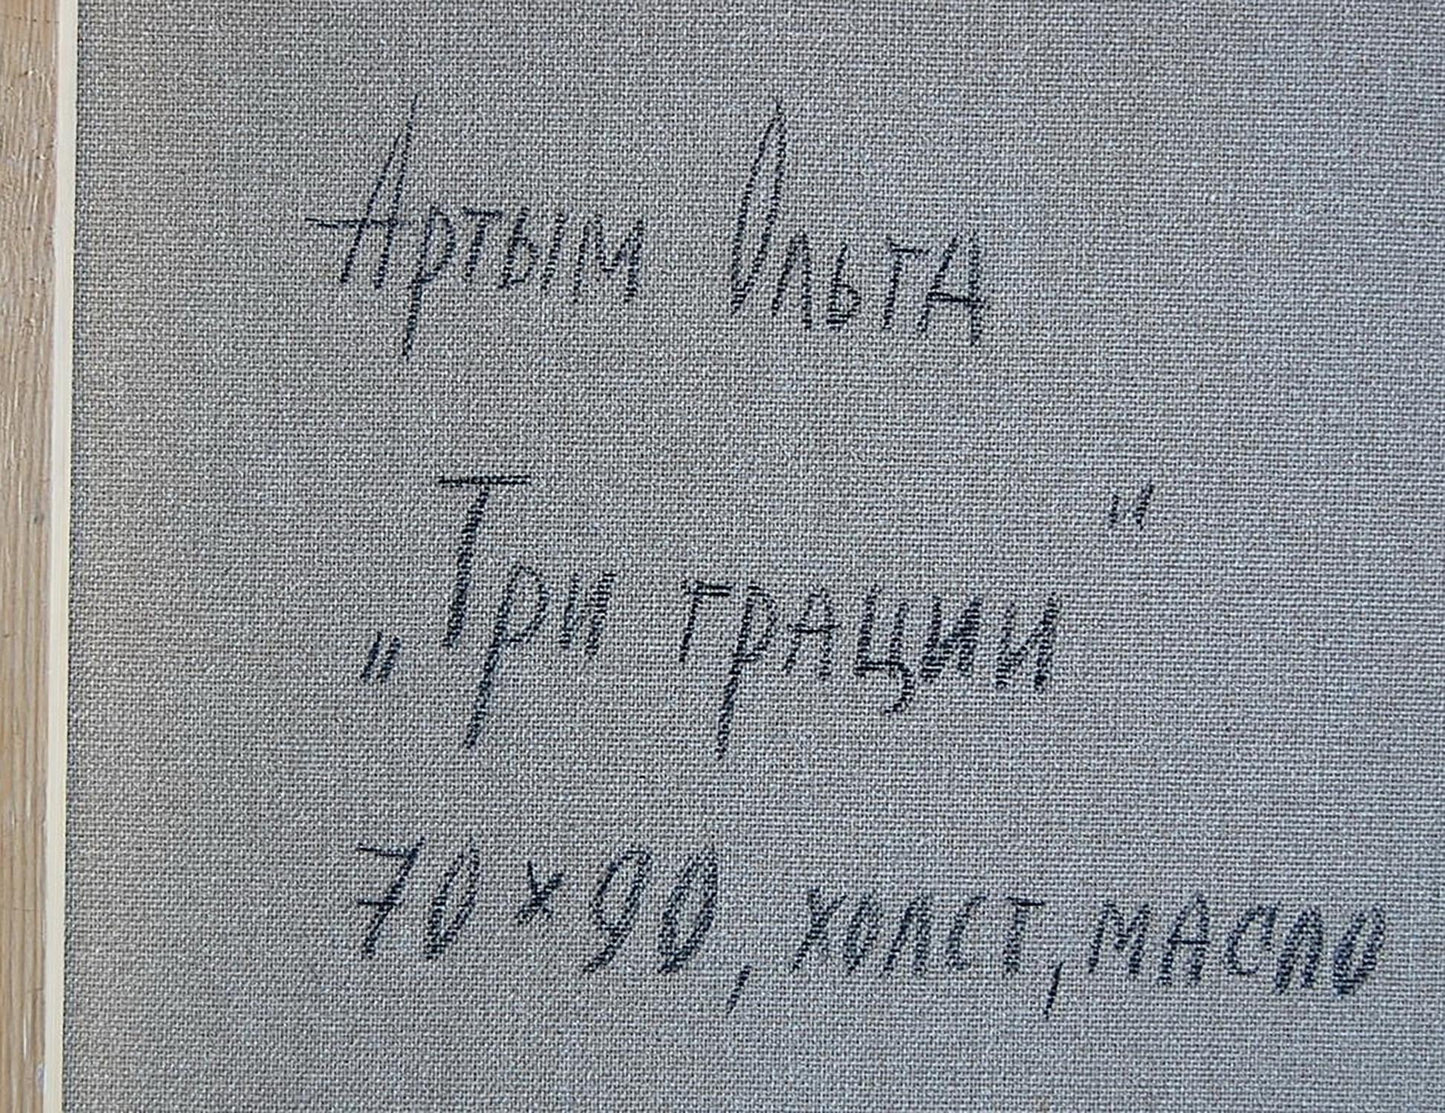 Артым Ольга
„Три грации“
70×90, холст, масло